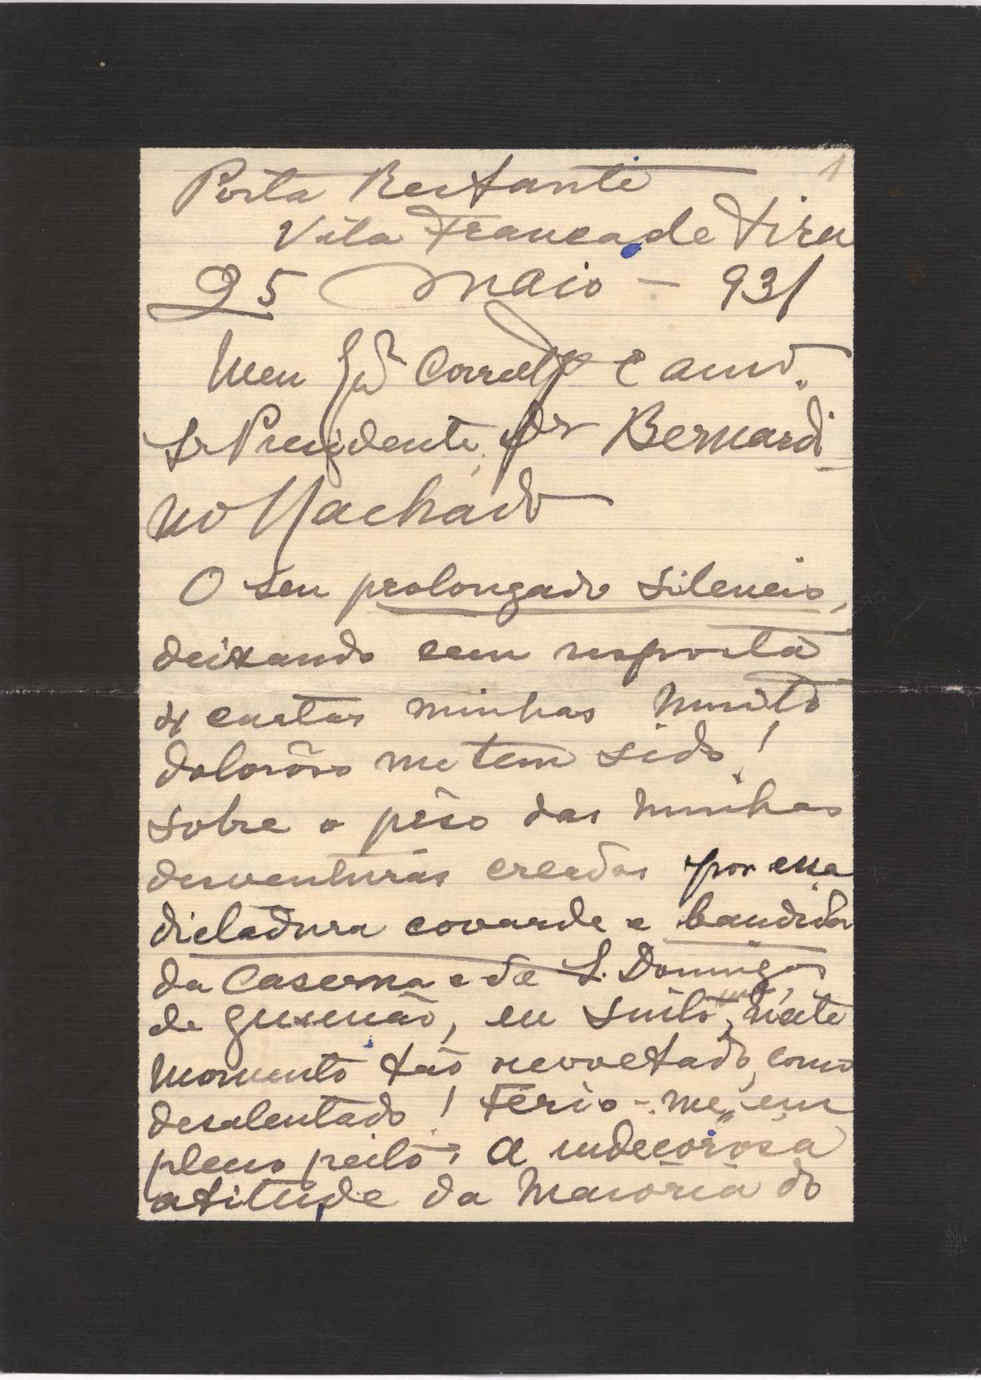 1
Posta Restante
Vila Franca de Xira
25 Maio - 931
Meu Gde Correlg e amo.
Sr Presidente, Dr Bernardi
no Machado
O seu prolongado silencio,
deixando sem resposta
4 cartas minhas muito
doloroso me tem sido!
Sobre o pêso das minhas
desventuras creadas por essa
dictadura covarde e bandida
da Caserna e de S. Domingos
de Gusmão, eu sinto, neste
momento tão revoltado, como
desalentado! Ferio-me, em
pleno peito, a indecorosa
atitude da Maioria do